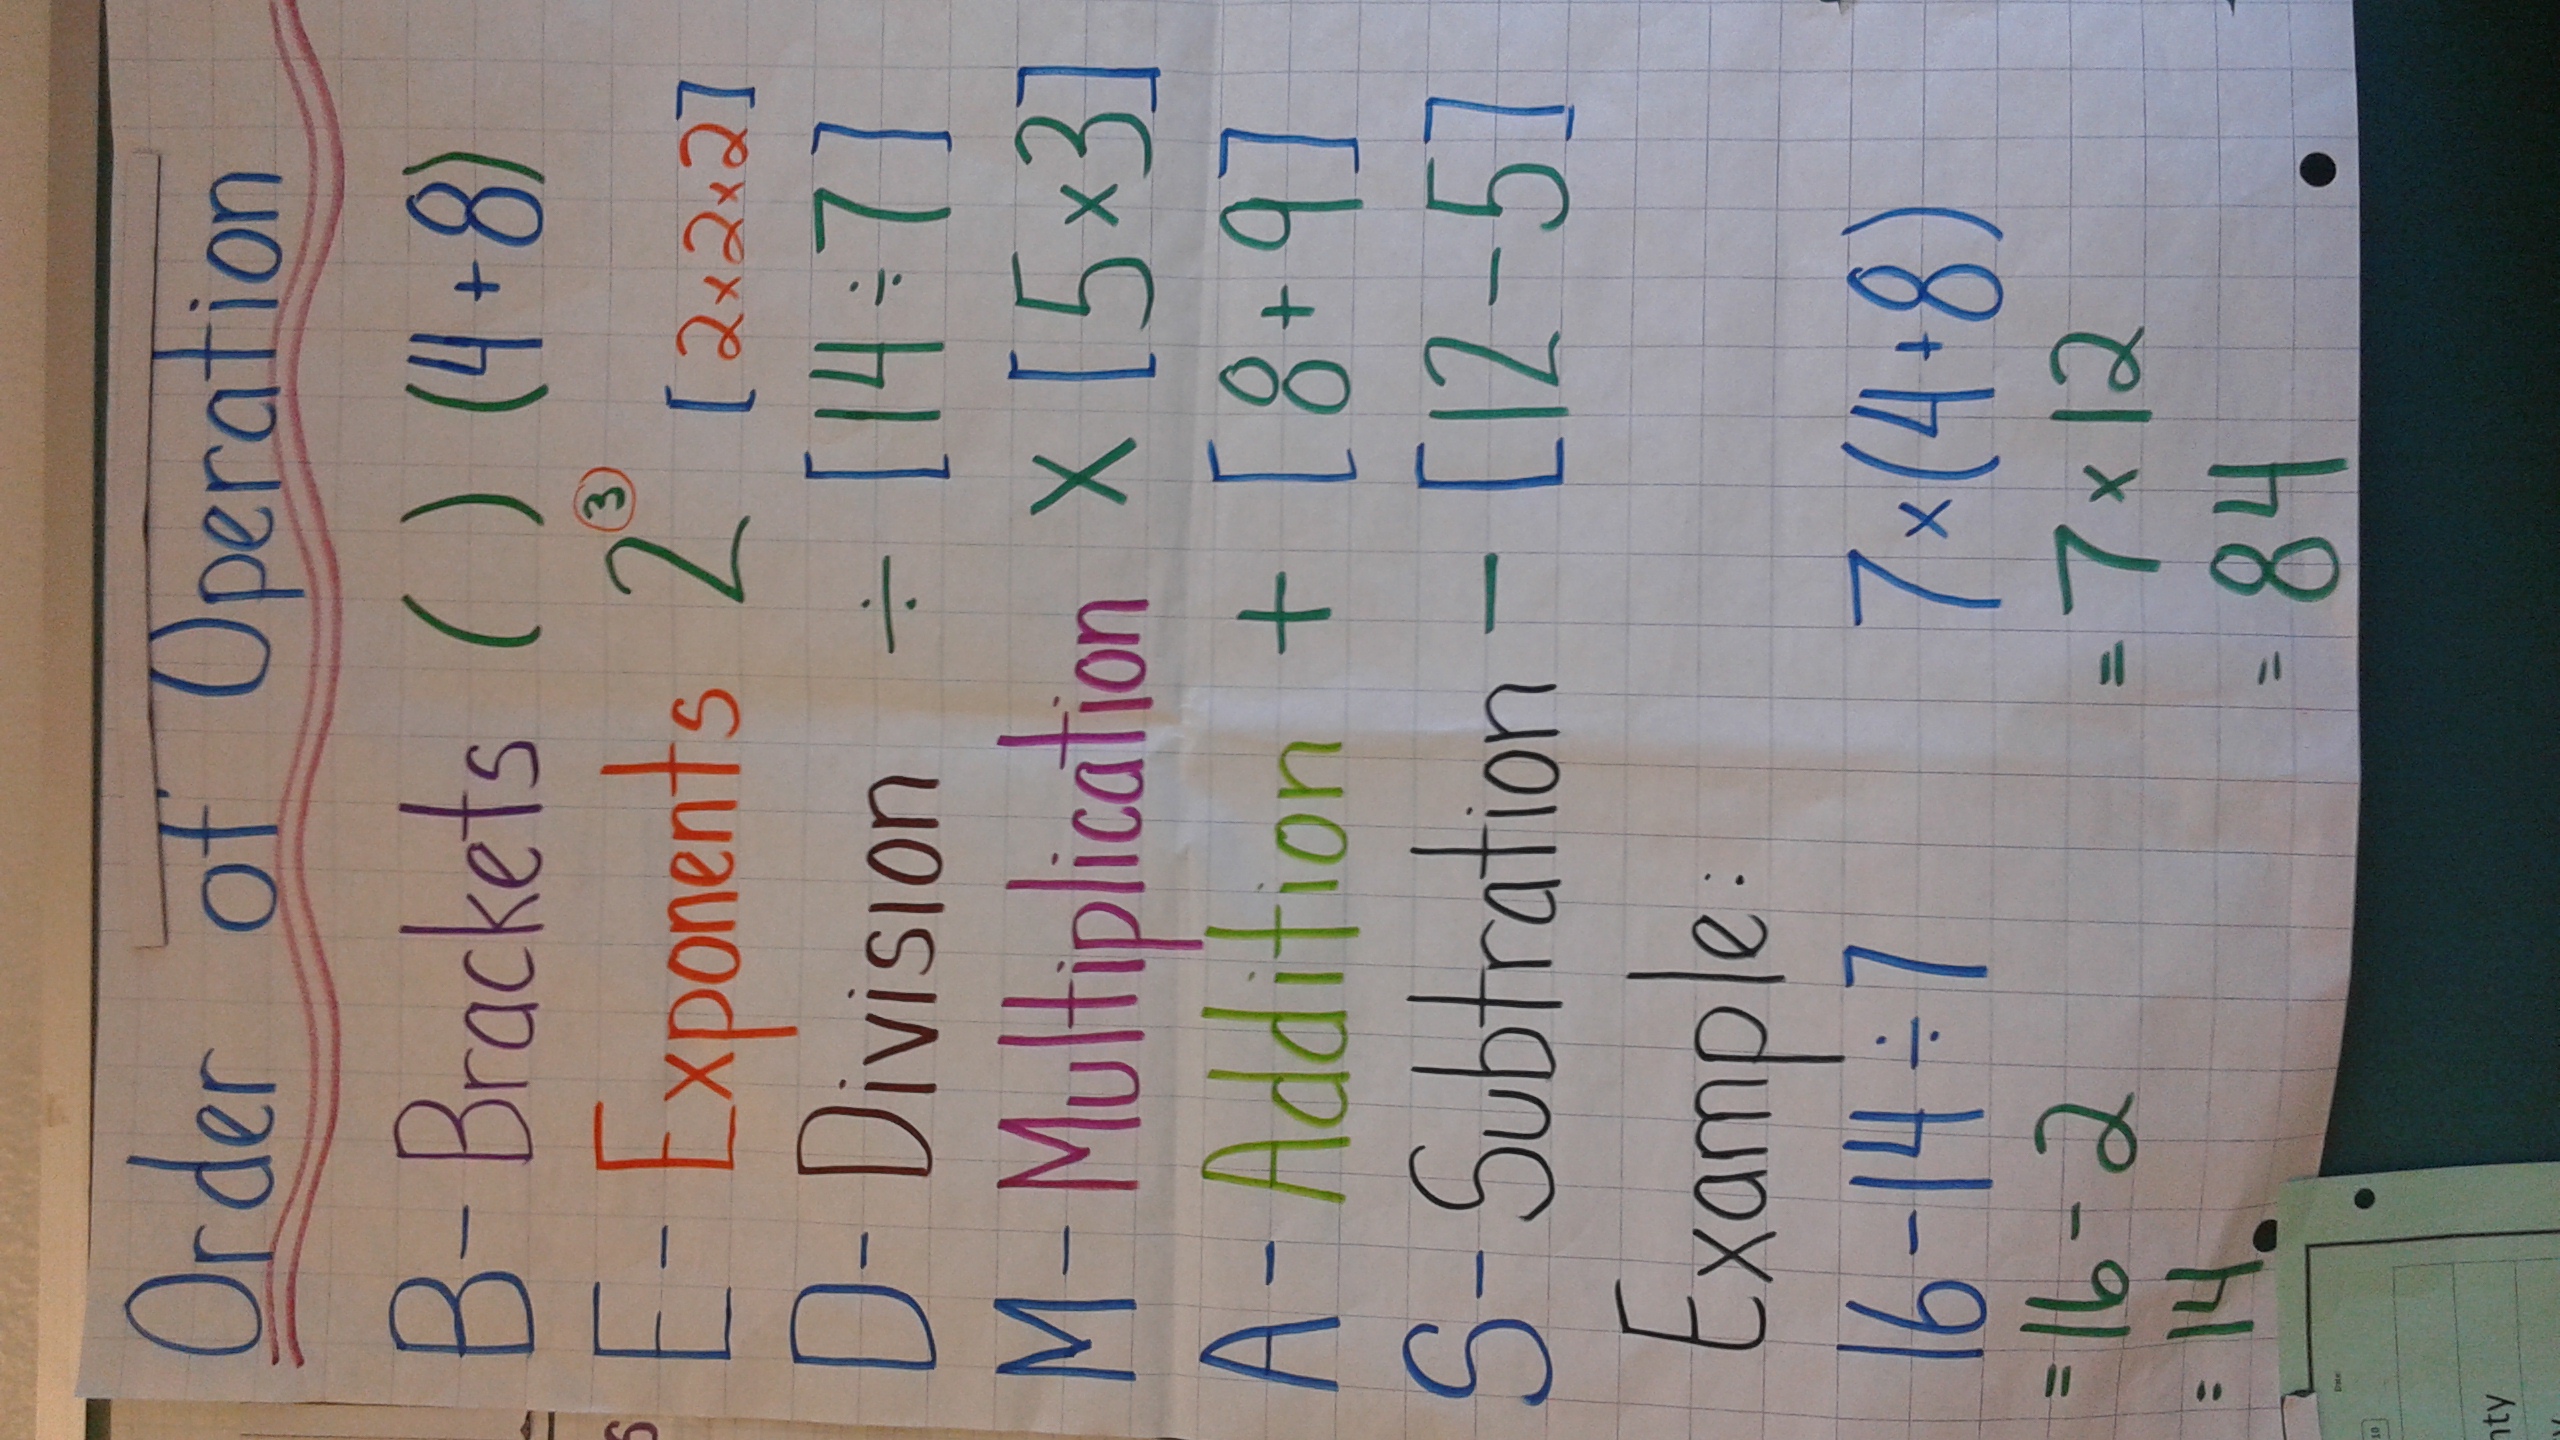 Order of Operation
B - Brackets ( ) (4+8)
E - Exponents 2³ [2×2×2]
D - Division ÷ [14÷7]
M - Multiplication × [5×3]
A - Addition + [8+9]
S - Subtration - [12-5]
Example:
16-14÷7
=16-2
=14
7×(4+8)
=7×12
=84